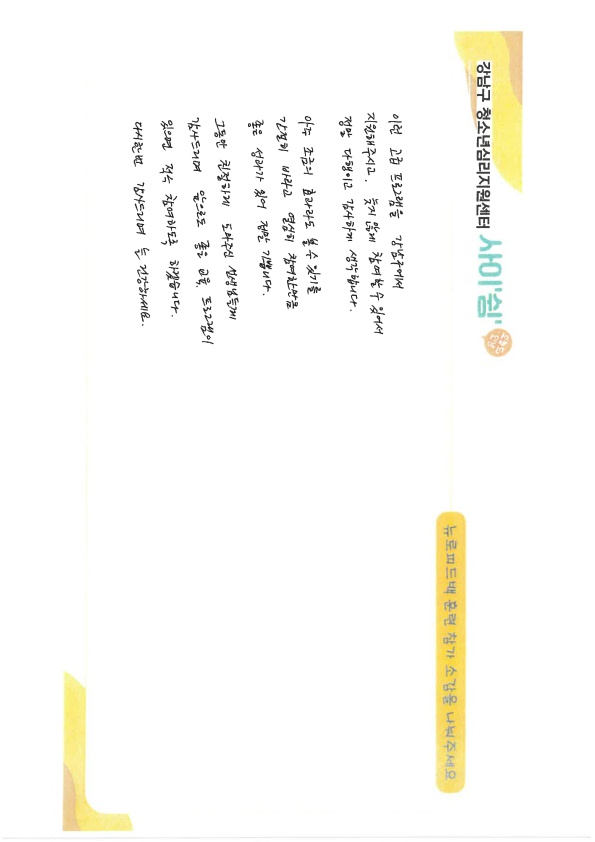 강남구 청소년심리지원센터 사이쉼
뉴로피드백 훈련 참가 소감을 나눠주세요
이런 고급 프로그램을 강남구에서
지원해주시고. 늦지 않게 참여할 수 있어서
정말 다행이고 감사하게 생각합니다.
아주 조금의 효과라도 볼 수 있기를
간절히 바라고 열심히 참여한만큼
좋은 성과가 있어 정말 기쁩니다.
그동안 친절하게 도와주신 선생님들께
감사드리며 앞으로도 좋은 교육, 프로그램이
있으면 적극 참여하도록 하겠습니다.
다시한번 감사드리며 늘 건강하세요.